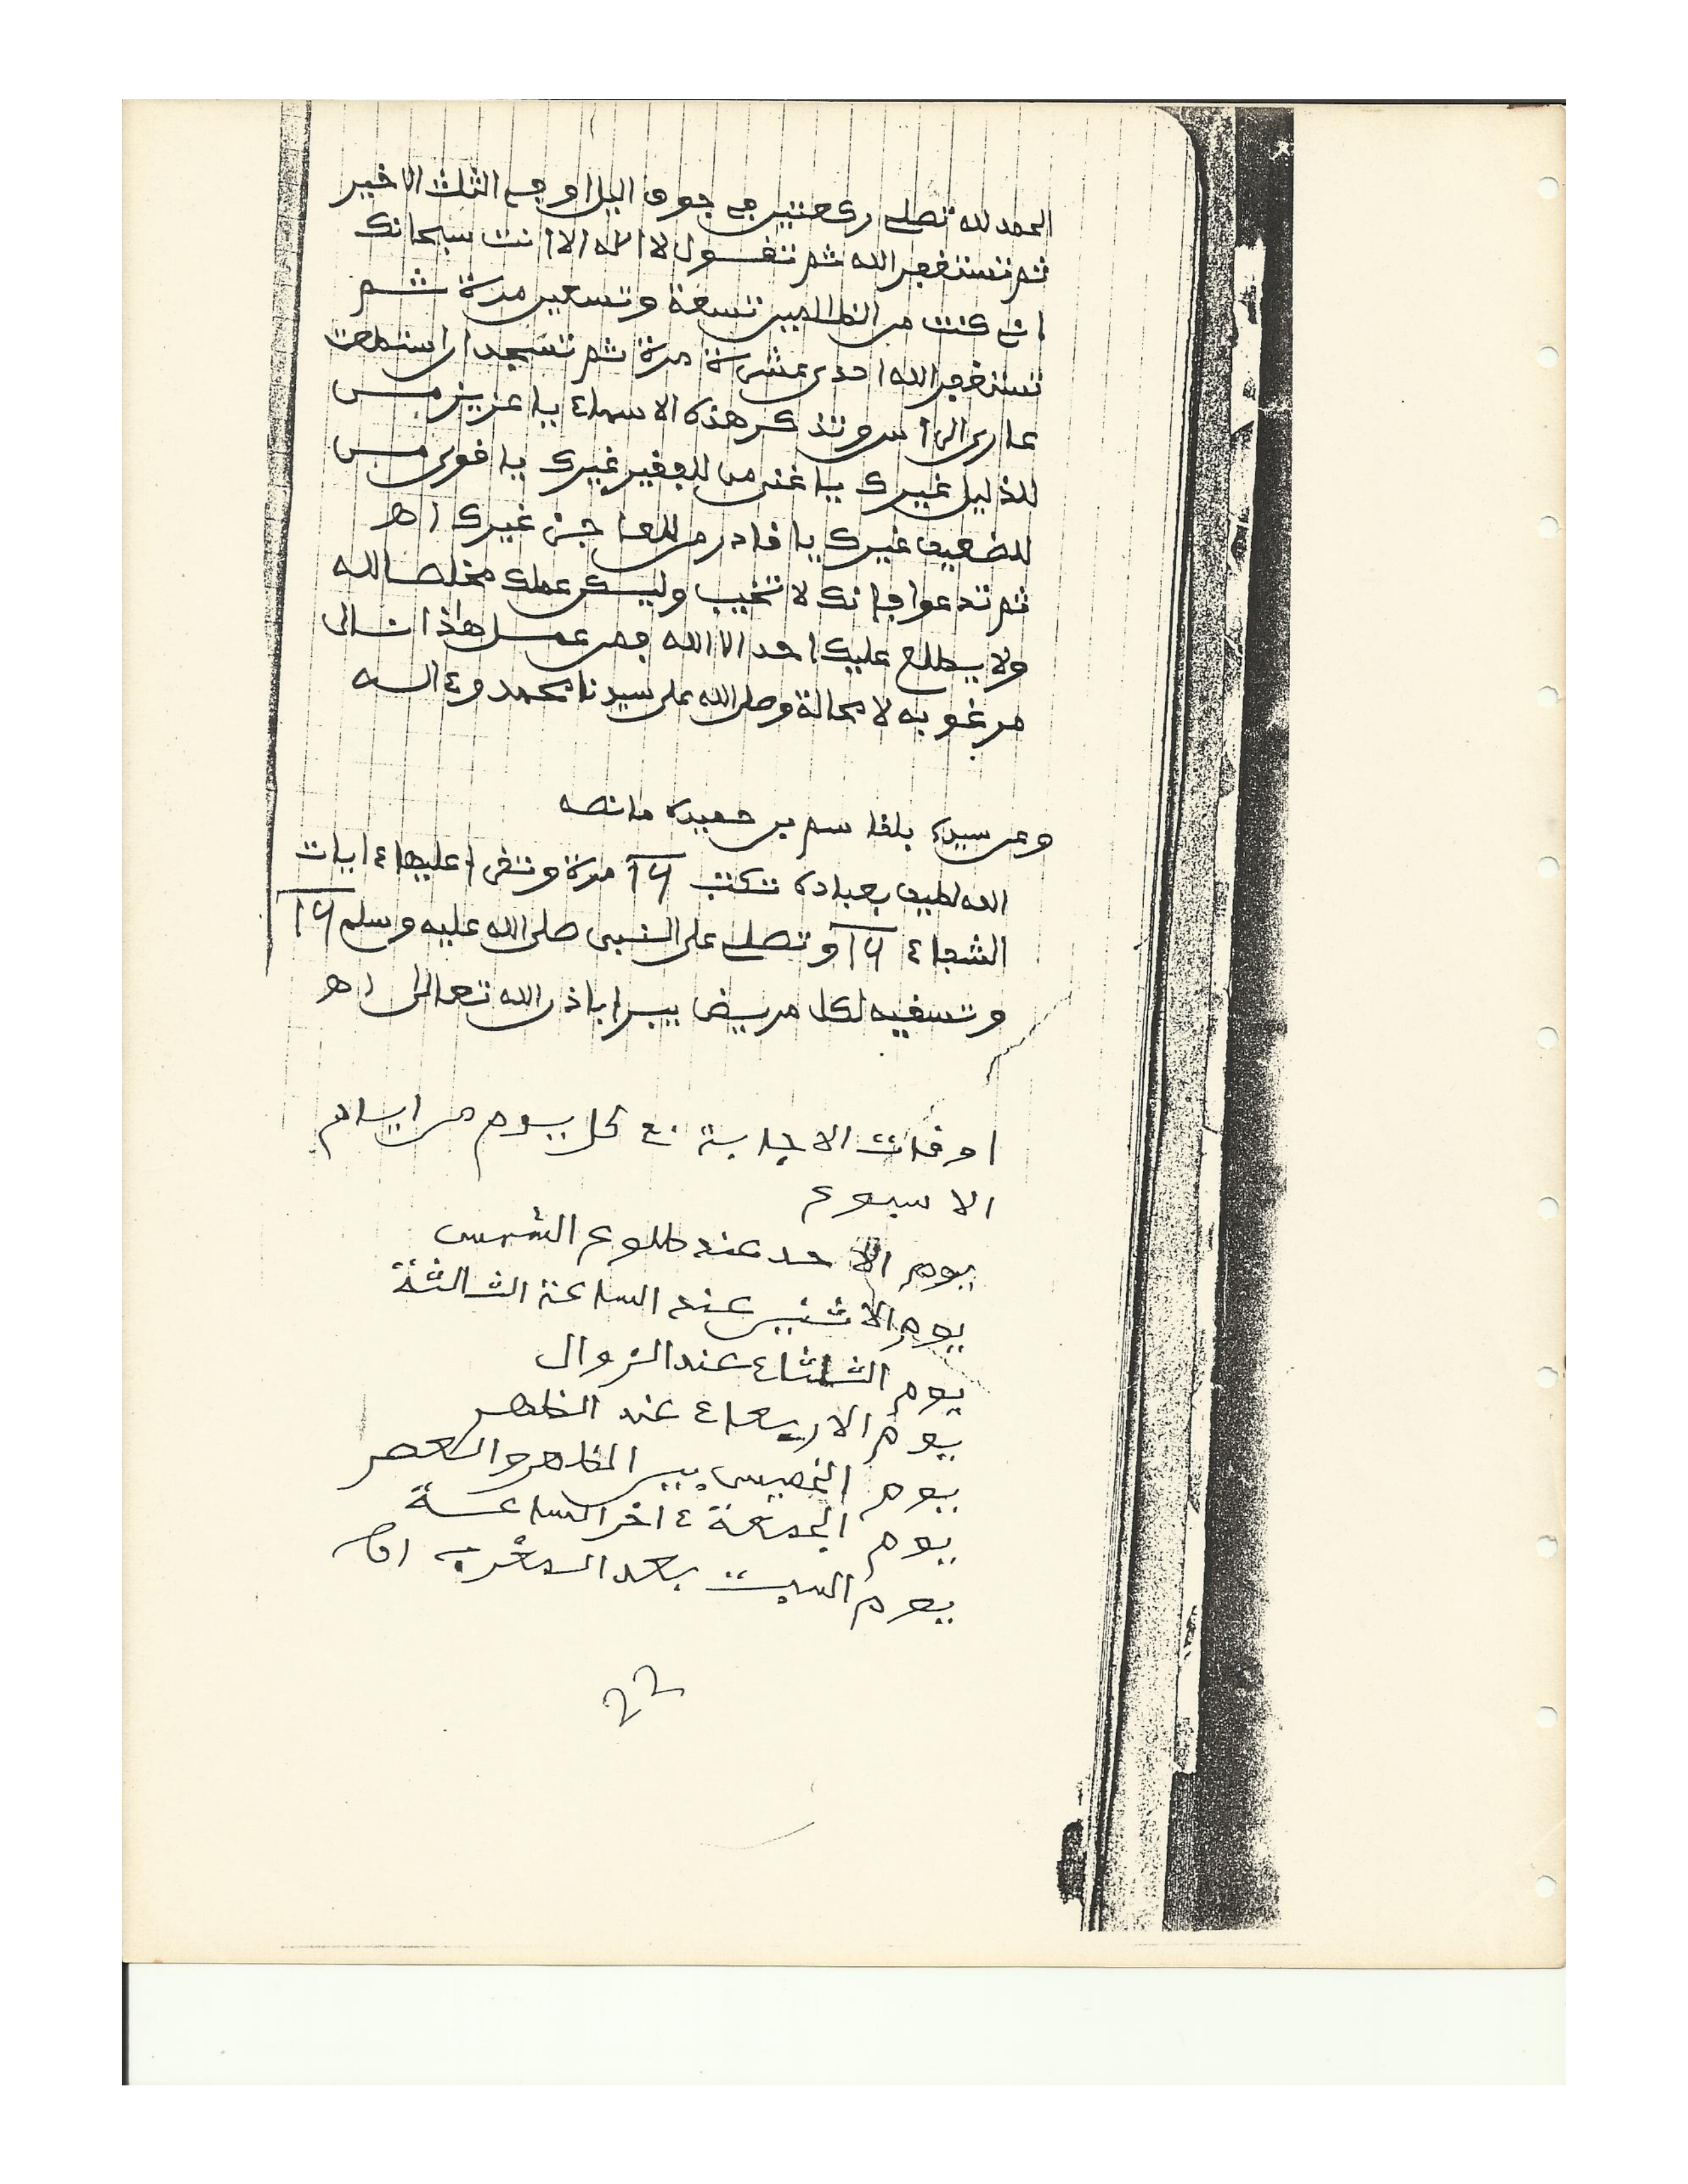 الحمد لله تصلي ركعتين في جوف اليل او في الثلث الاخير
ثم تستغفر الله ثم تقول لا اله الا انت سبحانك
اني كنت من الظالمين تسعة وتسعين مرة ثم
تستغفر الله احدى عشرة مرة ثم تسجد ان استطعت
عاري الراس وتذكر هذه الاسماء يا عزيز من
للذليل غيرك يا غني من للفقير غيرك يا قوي من
للضعيف غيرك يا قادر من للعاجز غيرك اه
ثم تدعوا فإنك لا تخيب وليكن عملك مخلصا لله
ولا يطلع عليك احد الا الله فمن عمل هاذا نال
مرغوبه لا محالة وصلى الله على سيدنا محمد وءاله
وعن سيدي بلقاسم بن حميدة ما نصه
الله لطيف بعباده تكتب 16 مرة وتقرا عليها ءايات
الشفاء 16 وتصلي على النبي صلى الله عليه وسلم 16
وتسقيه لكل مريض يبرا باذن الله تعالى اه
اوقات الاجابة في كل يوم من ايام
الاسبوع
يوم الاحد عند طلوع الشمس
يوم الاثنين عند الساعة الثالثة
يوم الثلثاء عند الزوال
يوم الاربعاء عند الظهر
يوم الخميس بين الظهر والعصر
يوم الجمعة ءاخر الساعة
يوم السبت بعد المغرب اه
22